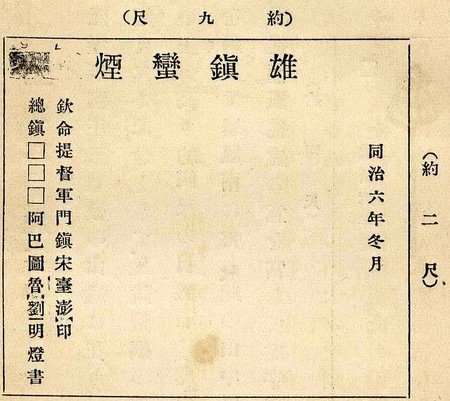 （約九尺）
雄鎭蠻煙
（約二尺）
同治六年冬月
欽命提督軍門鎭宋臺澎印
總鎭□□□阿巴圖魯劉明燈書